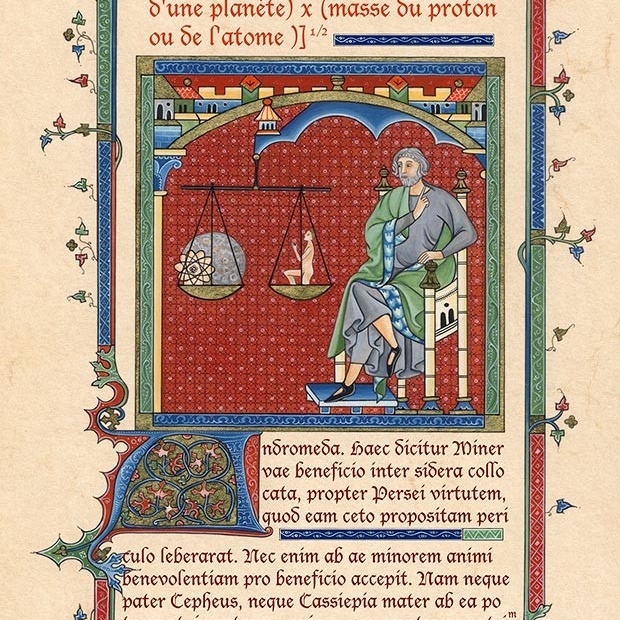 d'une planète) x (masse du proton
ou de l'atome )] 1/2
Andromeda. Haec dicitur Miner
vae beneficio inter sidera collo
cata, propter Persei virtutem,
quod eam ceto propositam peri
culo leberarat. Nec enim ab ae minorem animi
benevolentiam pro beneficio accepit. Nam neque
pater Cepheus, neque Cassiepia mater ab ea po